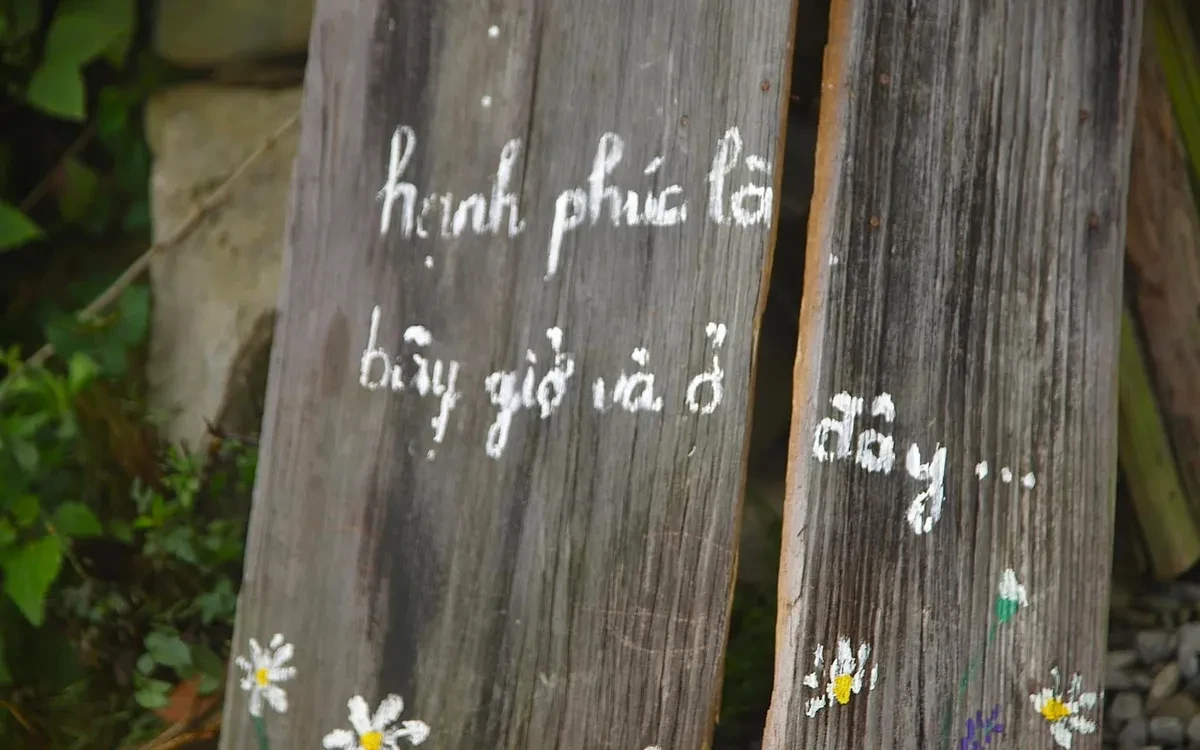 hạnh phúc là
bây giờ và ở
đây...